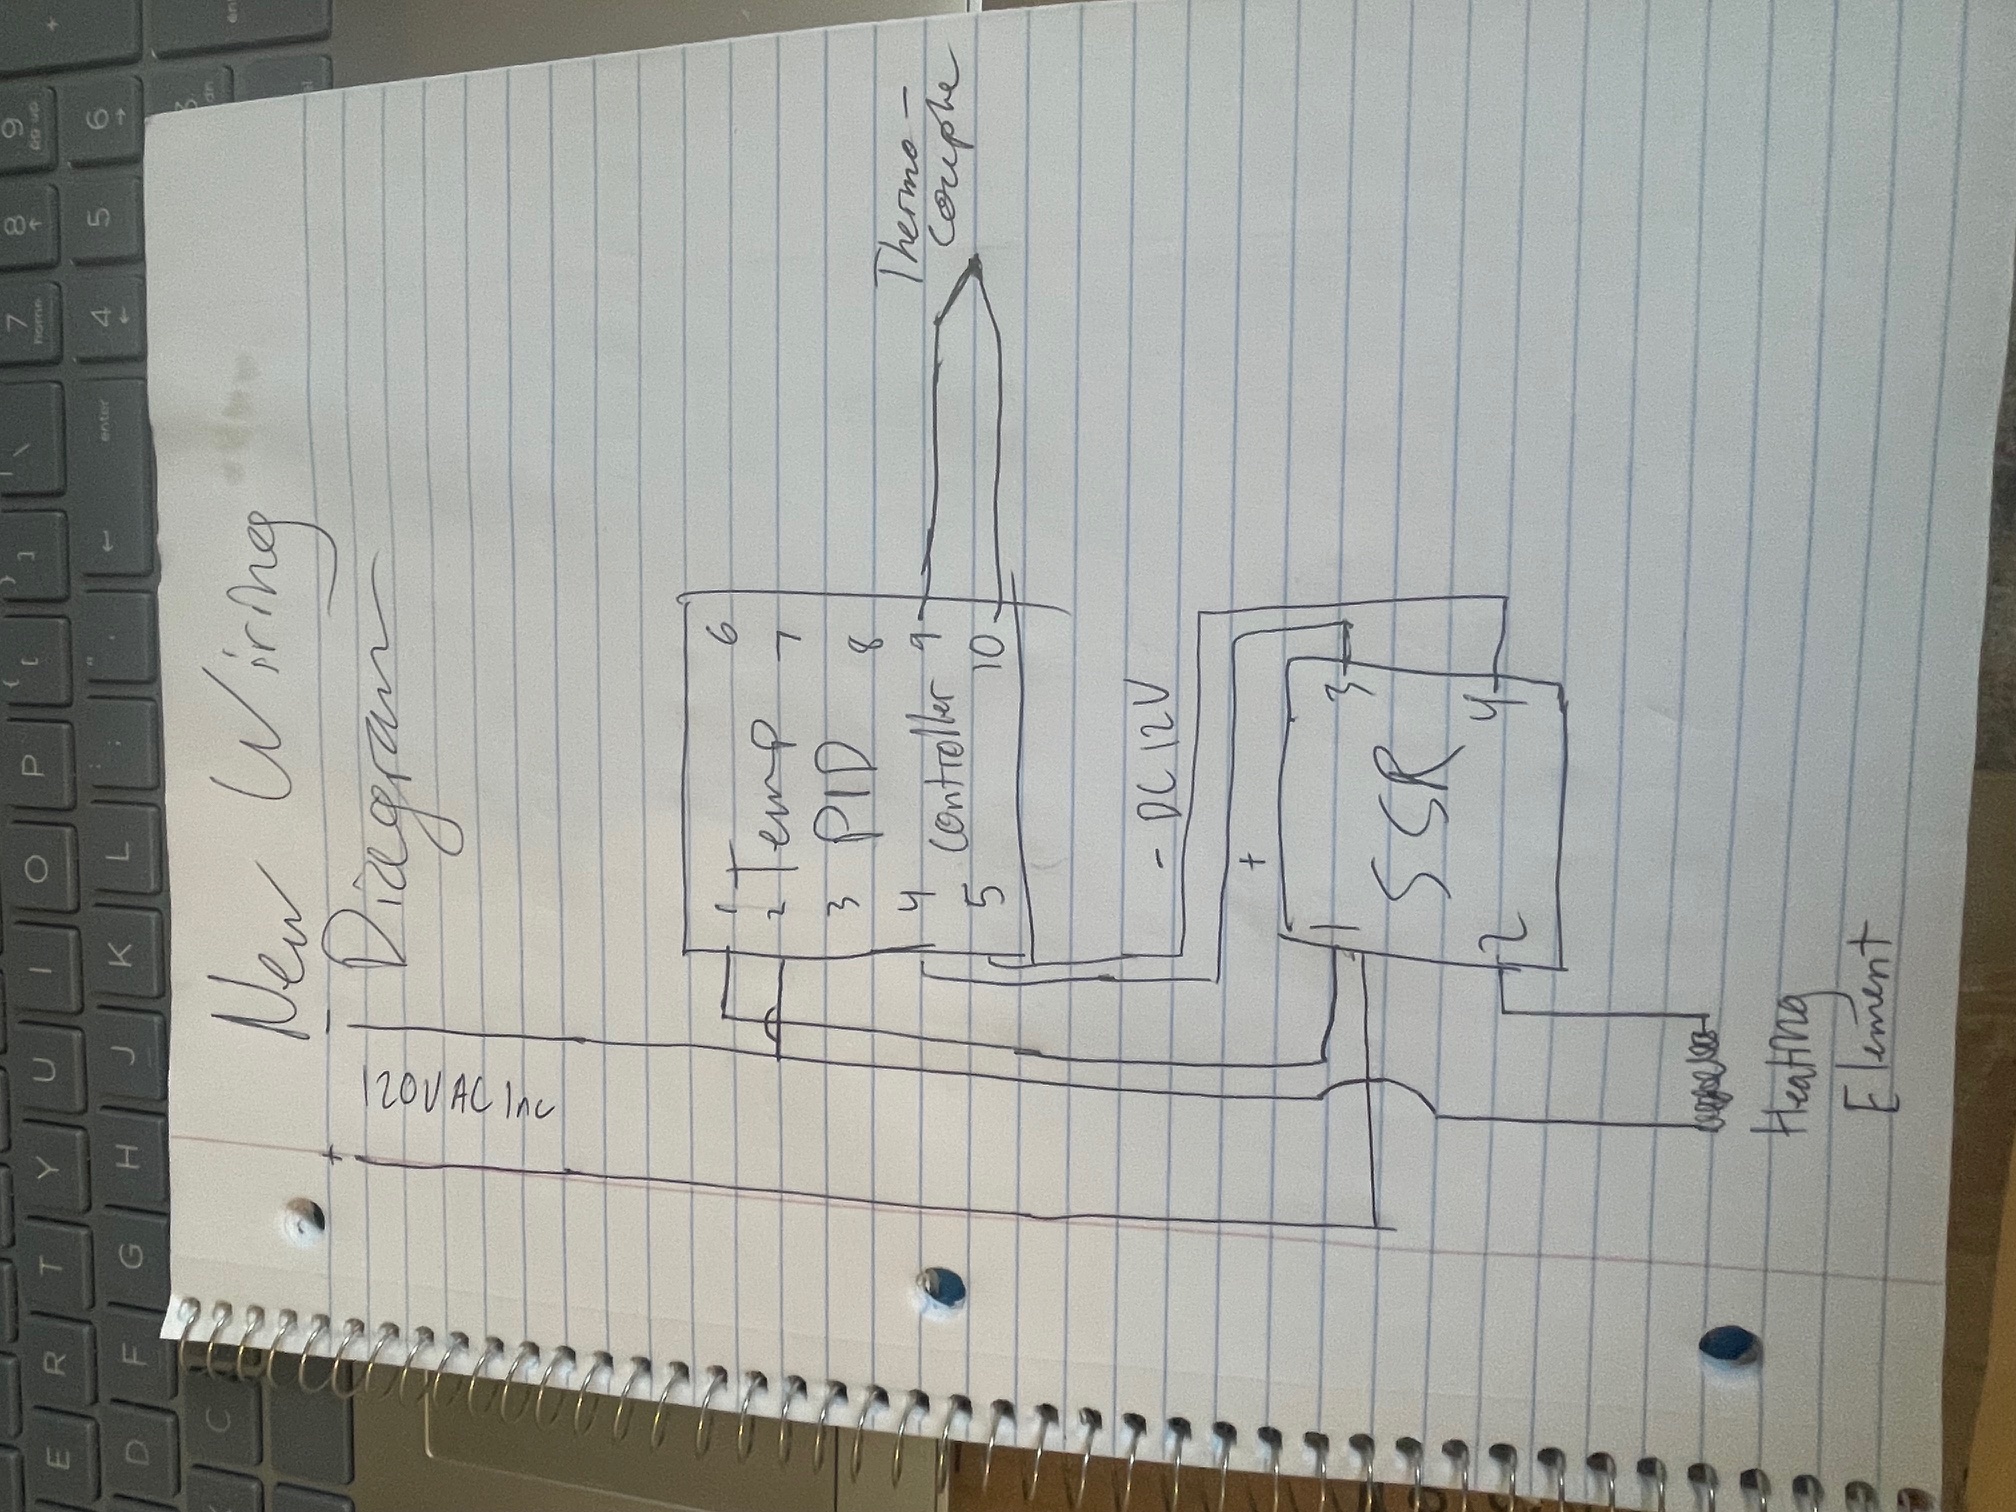 E R T Y U I O P { [ } ] | \ 7 home 8 ↑ 9 pg up +
D F G H J K L : ; " ' ← enter 4 ← 5 6 →
C
New Wiring
Diagram
+ −
120VAC Inc
1 6
2 Temp 7
3 PID 8
4 controller 9
5 10
Thermo-
couple
- DC 12V
+
1 3
SSR
2 4
Heating
Element